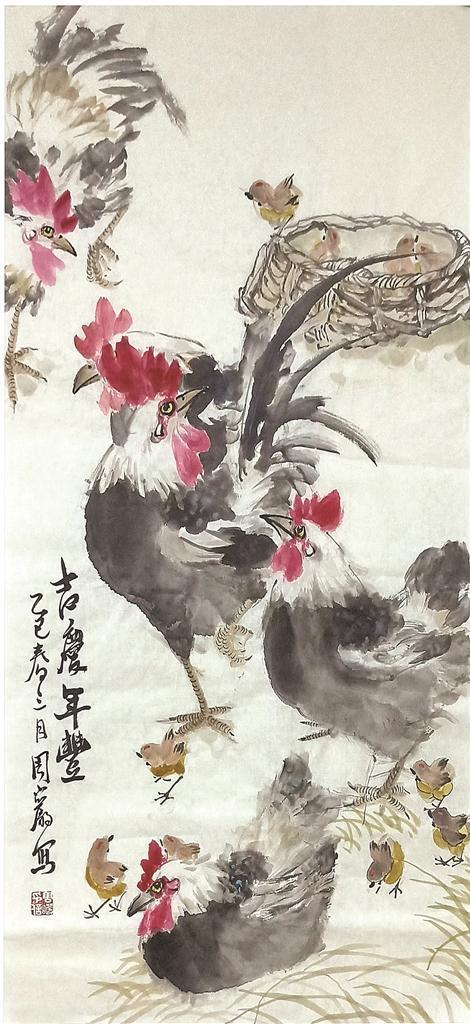 吉慶年豐
乙巳春三月周嵓寫